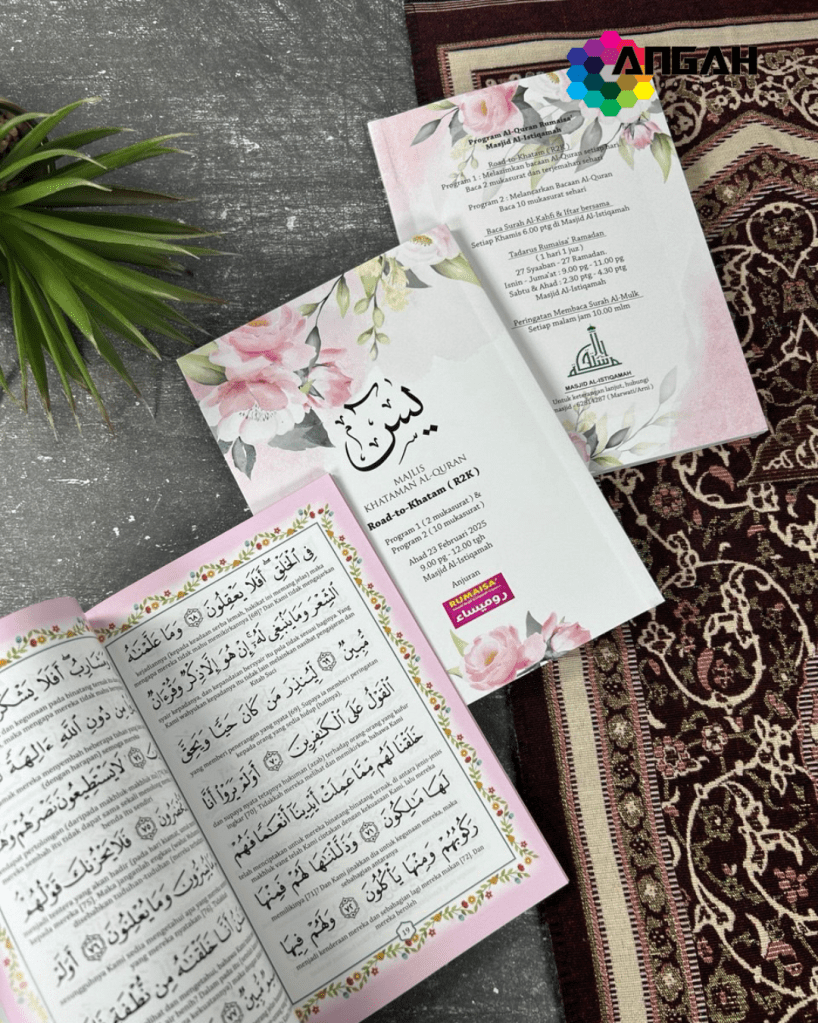 ANGAH
Program Al-Quran Rumaisa'
Masjid Al-Istiqamah
Road-to-Khatam ( R2K )
Program 1 : Melazimkan bacaan Al-Quran setiap hari
Baca 2 mukasurat dan terjemahan sehari
Program 2 : Melancarkan Bacaan Al-Quran
Baca 10 mukasurat sehari
Baca Surah Al-Kahfi & Iftar bersama
Setiap Khamis 6.00 ptg di Masjid Al-Istiqamah
Tadarus Rumaisa' Ramadan
( 1 hari 1 juz )
27 Syaaban - 27 Ramadan.
Isnin - Juma'at : 9.00 pg - 11.00 pg
Sabtu & Ahad : 2.30 ptg - 4.30 ptg
Masjid Al-Istiqamah
Peringatan Membaca Surah Al-Mulk
Setiap malam jam 10.00 mlm
MASJID AL-ISTIQAMAH
Untuk keterangan lanjut, hubungi
( Marwati/Arni )
يس
MAJLIS
KHATAMAN AL-QURAN
Road-to-Khatam ( R2K )
Program 1 ( 2 mukasurat ) &
Program 2 ( 10 mukasurat )
Ahad 23 Februari 2025
9.00 pg - 12.00 tgh
Masjid Al-Istiqamah
Anjuran
RUMAISA'
روميساء
فِي الْخَلْقِ أَفَلَا يَعْقِلُونَ ٦٨ وَمَا عَلَّمْنَاهُ
kejadiannya (kepada keadaan serba lemah, hakikat ini memang jelas) maka
mengapa mereka tidak mahu memikirkannya [68]? Dan Kami tidak mengajarkan
الشِّعْرَ وَمَا يَنْبَغِي لَهُ إِنْ هُوَ إِلَّا ذِكْرٌ وَقُرْآنٌ
syair kepadanya, dan kepandaian bersyair itu pula tidak sesuai baginya. Yang
Kami wahyukan kepadanya itu tidak lain melainkan nasihat pengajaran dan
Kitab Suci
مُبِينٌ ٦٩ لِيُنْذِرَ مَنْ كَانَ حَيًّا وَيَحِقَّ
yang memberi penerangan yang nyata [69]. Supaya ia memberi peringatan
kepada orang yang sedia hidup (hatinya),
الْقَوْلُ عَلَى الْكَافِرِينَ ٧٠ أَوَلَمْ يَرَوْا أَنَّا
dan supaya nyata tetapnya hukuman (azab) terhadap orang-orang yang kufur
ingkar [70]. Tidakkah mereka melihat dan memikirkan, bahawa Kami
خَلَقْنَا لَهُمْ مِمَّا عَمِلَتْ أَيْدِينَا أَنْعَامًا فَهُمْ
telah menciptakan untuk mereka binatang-binatang ternak, di antara jenis-jenis
makhluk yang telah Kami ciptakan dengan kekuasaan Kami, lalu mereka
لَهَا مَالِكُونَ ٧١ وَذَلَّلْنَاهَا لَهُمْ فَمِنْهَا
memilikinya [71]? Dan Kami jinakkan dia untuk kegunaan mereka, maka
sebahagian antaranya
رَكُوبُهُمْ وَمِنْهَا يَأْكُلُونَ ٧٢ وَلَهُمْ فِيهَا
menjadi kenderaan mereka dan sebahagian lagi mereka makan [72]. Dan
mereka beroleh